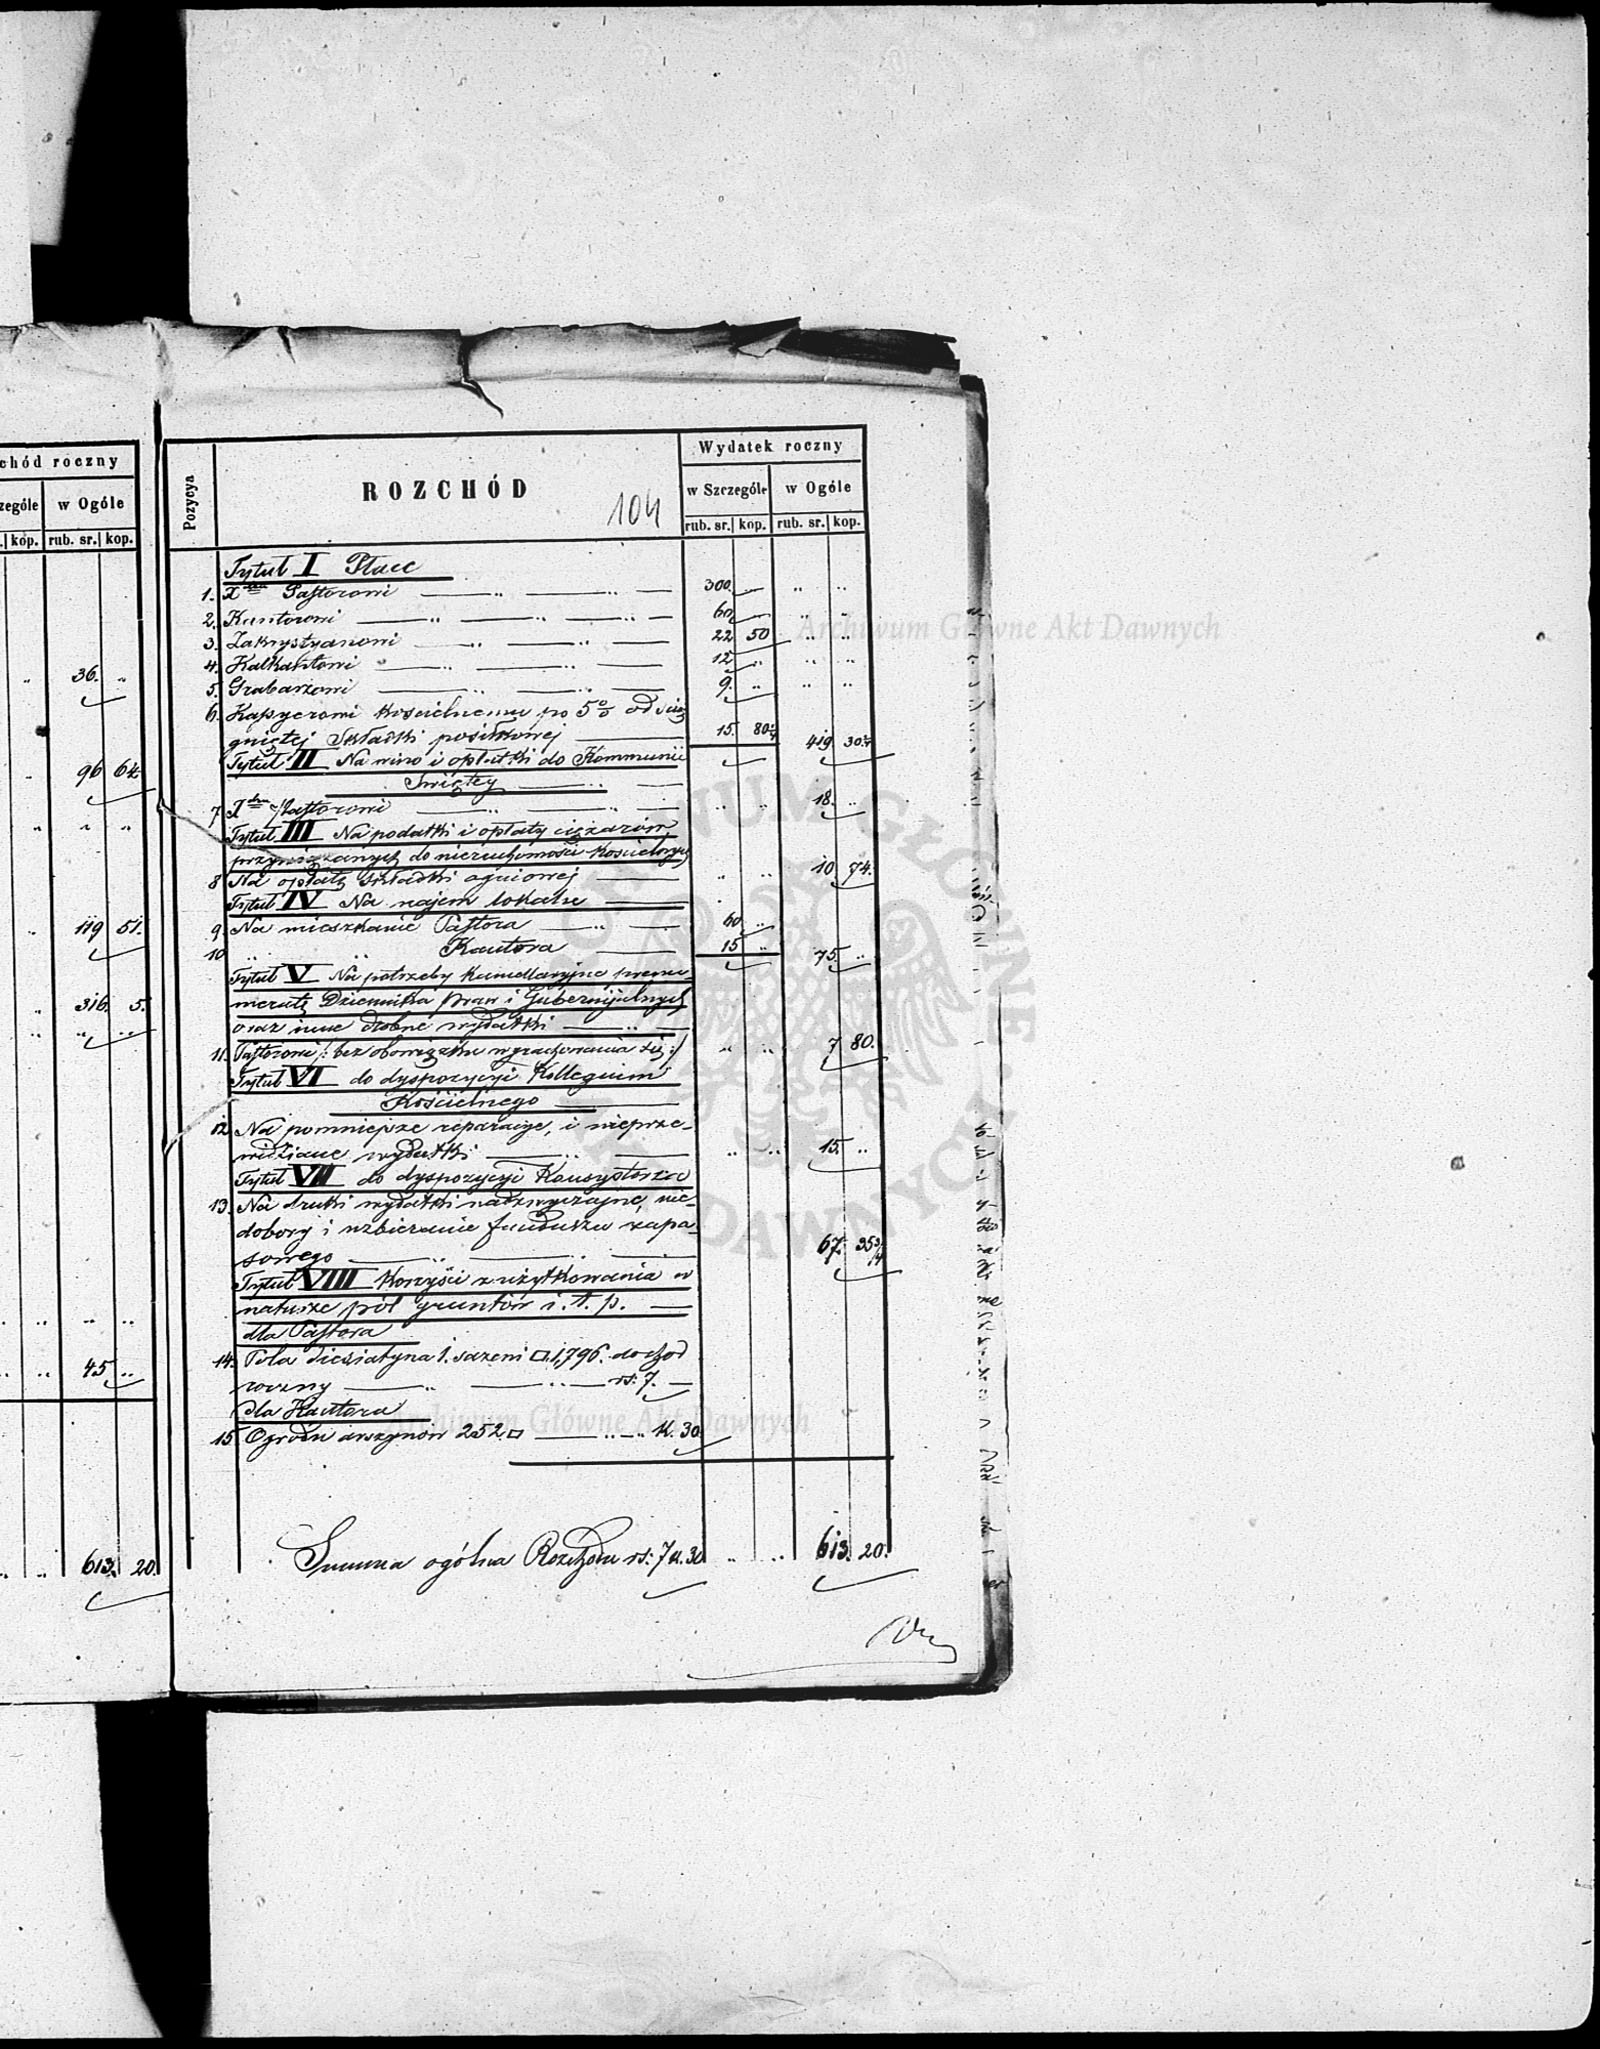 chód roczny
zególe w Ogóle
kop. rub. sr. kop.
36. "
96 64.
" " "
119 51.
316. 5.
45 "
613. 20.
Pozycya
ROZCHÓD
104
Wydatek roczny
w Szczególe w Ogóle
rub. sr. kop. rub. sr. kop.
Tytuł I Płace
1. X Pastorowi 300. " " "
2. Kantorowi 60 " " "
3. Zakrystyanowi 22 50 " "
4. Kalkantowi 12 " " "
5. Grabarzowi 9. " " "
6. Kassyerowi kościelnemu po 5% od ścią
gniętej Składki posiłkowej 15. 80 419 30
Tytuł II Na wino i opłatki do Kommunii
Świętey
7 X Pastorowi " " 18. "
Tytuł III Na podatki i opłaty ciężarów
przywiązanych do nieruchomości kościelnych
8 Na opłatę składki ogniowej " " 10 74.
Tytuł IV Na najem lokalu
9 Na mieszkanie Pastora 60 "
10 " " Kantora 15 " 75. "
Tytuł V Na potrzeby kancellaryjne prenu-
meratę Dziennika Praw i Gubernijalnych
oraz inne drobne wydatki
11. Pastorowi /: bez obowiązku wyrachowania się :/ " " 7 80.
Tytuł VI do dyspozycyi Kollegium
Kościelnego
12. Na pomniejsze reparacye, i nieprze-
widziane wydatki " " 15. "
Tytuł VII do dyspozycyi Konsystorza
13. Na druki wydatki nadzwyczajne, nie-
dobory i uzbieranie funduszu zapa-
sowego 67. 35 3/4
Tytuł VIII Korzyści z użytkowania w
naturze pól gruntów i. t. p.
dla Pastora
14. Pola diesiatyna 1. sażeni □ 1,796. dochod
roczny rs: 7.
dla Kantora
15 Ogrodu arszynów 252 □ K. 30
Summa ogólna Rozchodu rs: 7 k. 30 " " 613. 20.
Archiwum Główne Akt Dawnych
Archiwum Główne Akt Dawnych
ARCHIWUM GŁÓWNE AKT DAWNYCH